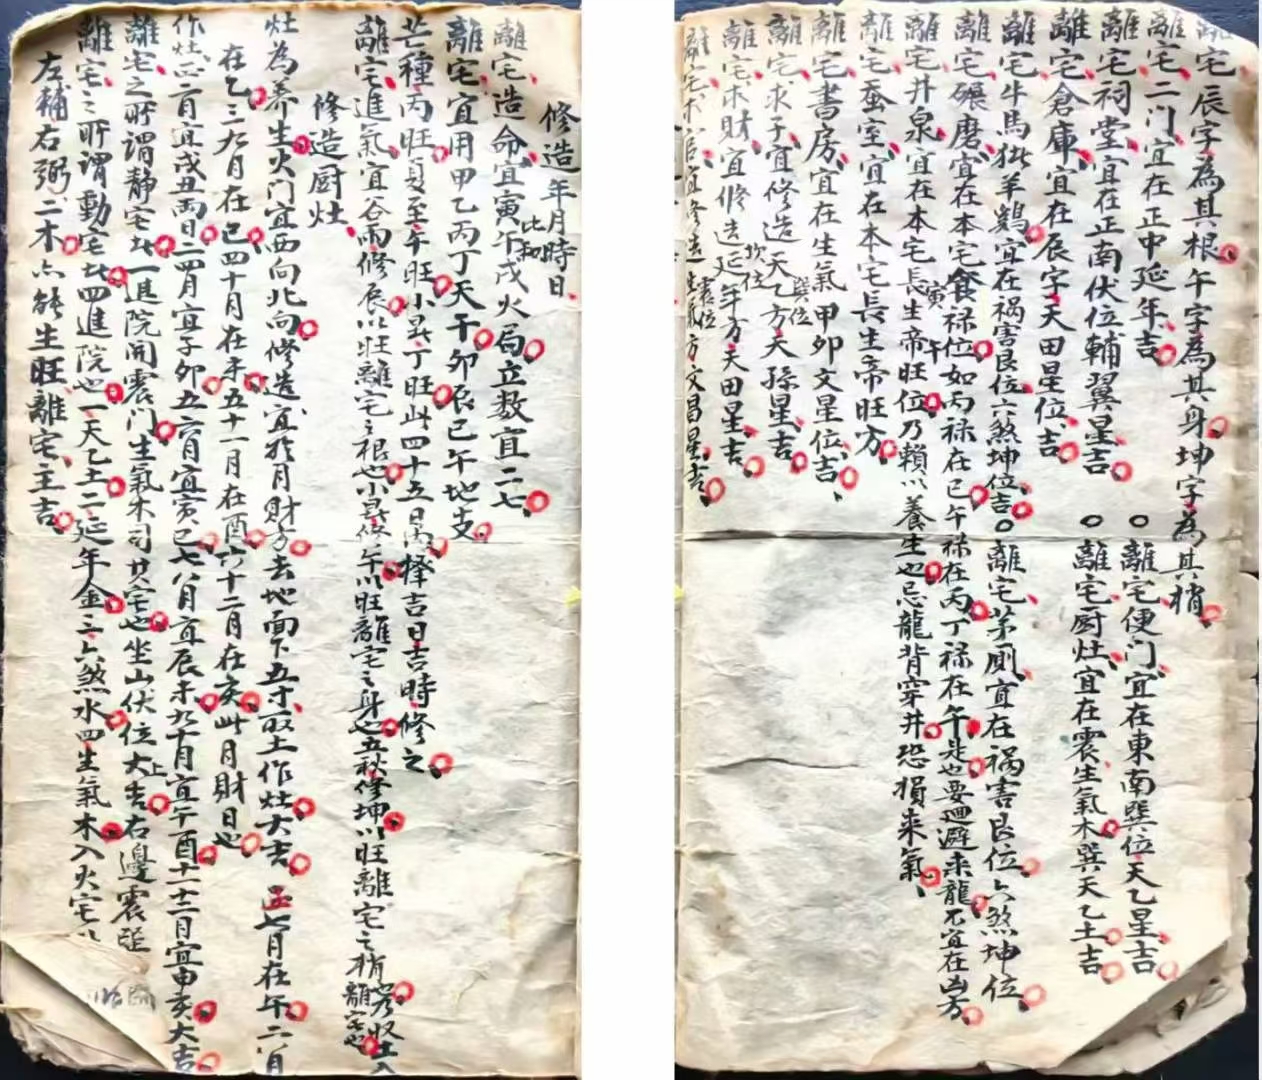 離宅辰字為其根午字為其身坤字為其稍
離宅二门宜在正中延年吉○離宅便门宜在東南巽位天乙星吉
離宅祠堂宜在正南伏位輔翼星吉○離宅厨灶宜在震生氣木巽天乙土吉
離宅倉庫宜在辰字天田星位吉
離宅牛馬猪羊鷄宜在祸害艮位六煞坤位吉○離宅茅厠宜在祸害艮位六煞坤位
離宅碾磨宜在本宅食禄位如丙禄在巳午禄在丙丁禄在午是也要廻避来龍不宜在凶方
離宅井泉宜在本宅長生寅帝旺午位乃賴以養生也忌龍背穿井恐損来氣
離宅蚕室宜在本宅長生帝旺方
離宅書房宜在生氣甲卯文星位吉
離宅求子宜修造天乙巽位方天孫星吉
離宅求財宜修造延年坎位方天田星吉
離宅求官宜修造生氣震位方文昌星吉
修造年月時日
離宅造命宜寅午戌火局立数宜二七
比和
離宅宜用甲乙丙丁天干卯辰巳午地支
芒種丙旺夏至午旺小暑丁旺此四十五日内擇吉日吉時修之
離宅進氣宜谷雨修辰以旺離宅之根也小暑修午以旺離宅之身也立秋修坤以旺離宅之稍
離宅也
修造厨灶
灶為养生火门宜西向北向修造宜於月財方去地面下五寸取土作灶大吉正七月在午二八月
在乙三九月在巳四十月在未五十一月在酉六十二月在亥此月財日也
作灶正二月宜戌丑両日三四月宜子卯五六月宜寅巳七八月宜辰未九十月宜午酉十一十二月宜申亥大吉
離宅之所謂静宅者一進院開震门生氣木司其宅也坐山伏位大吉右邊震
離宅之所謂動宅者四進院也一天乙土二延年金三六煞水四生氣木入火宅
左輔右弼二木亦能生旺離宅主吉